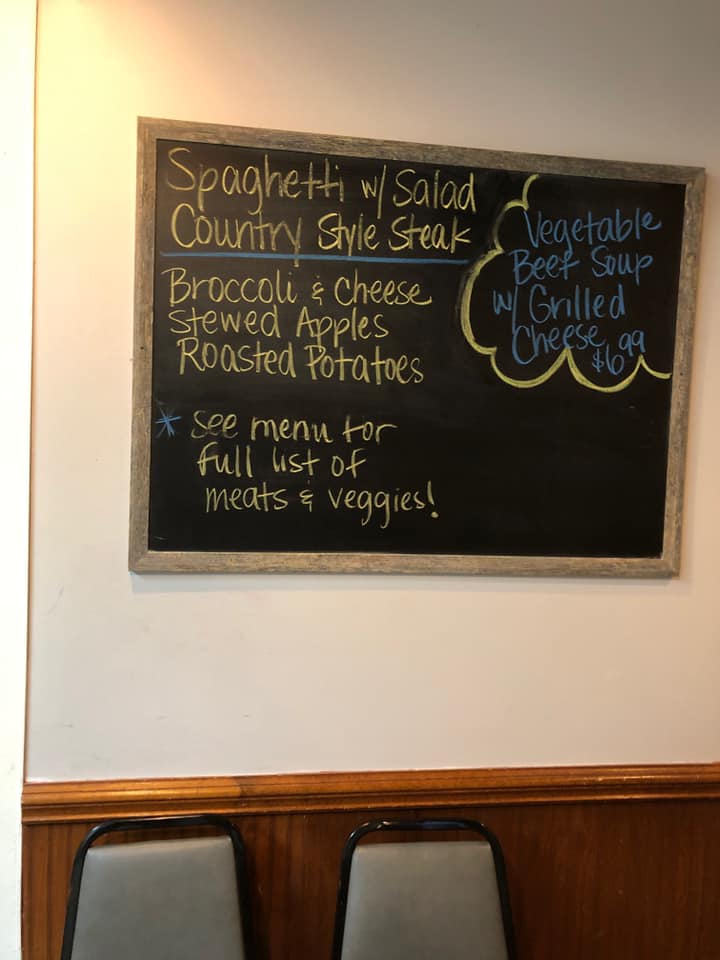 Spaghetti w/ Salad
Country Style Steak
Broccoli & Cheese
Stewed Apples
Roasted Potatoes
* See menu for
full list of
meats & veggies!
Vegetable
Beef Soup
w/ Grilled
Cheese
$6.99